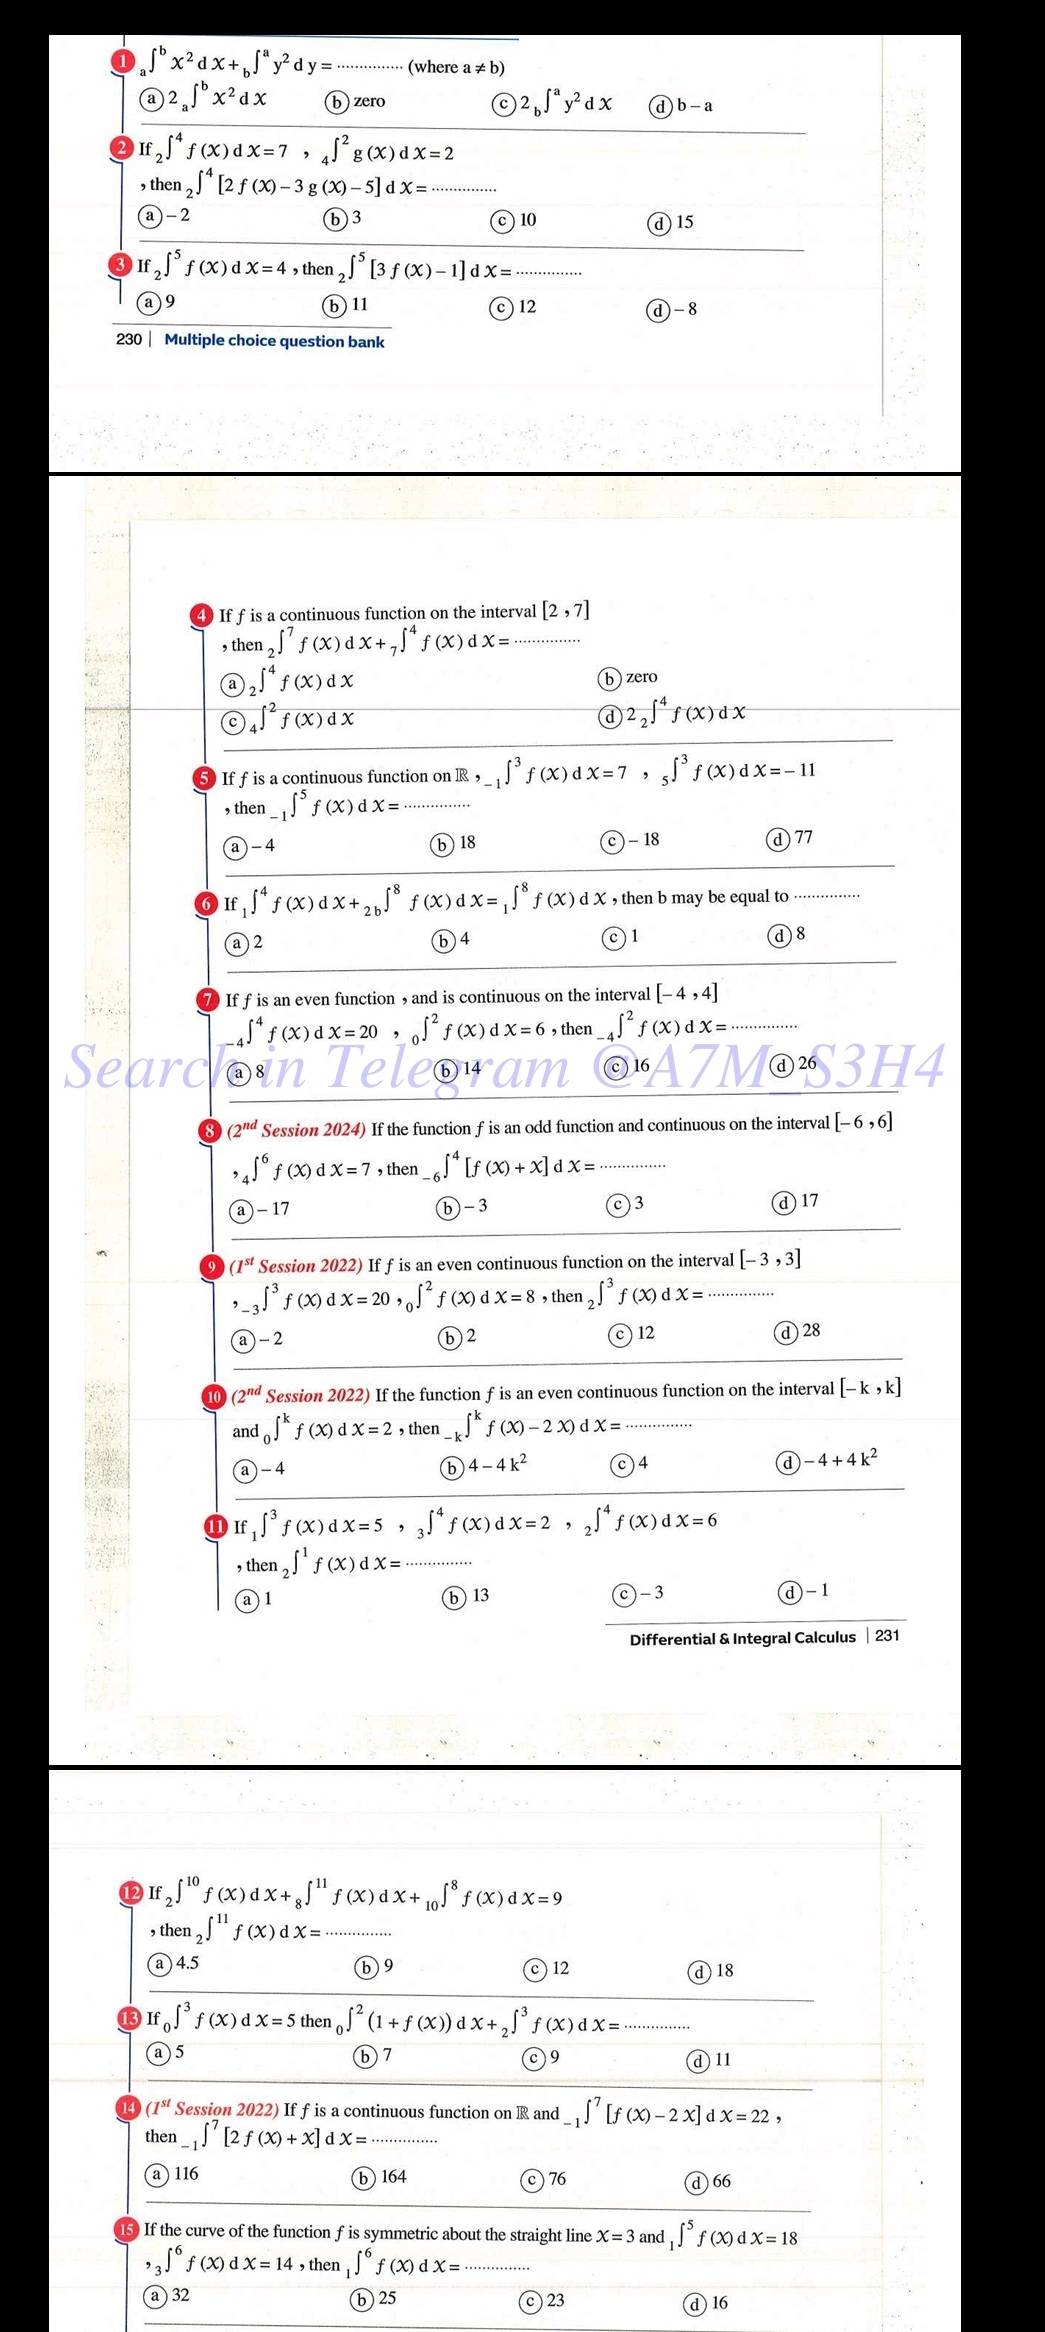 1 ₐ∫ᵇ x² dx + ᵦ∫ᵃ y² dy = ............... (where a ≠ b)
ⓐ 2 ₐ∫ᵇ x² dx ⓑ zero ⓒ 2 ᵦ∫ᵃ y² dx ⓓ b – a
2 If ₂∫⁴ f(x) dx = 7 , ₄∫² g(x) dx = 2
, then ₂∫⁴ [2 f(x) – 3 g(x) – 5] dx = ...............
ⓐ – 2 ⓑ 3 ⓒ 10 ⓓ 15
3 If ₂∫⁵ f(x) dx = 4 , then ₂∫⁵ [3 f(x) – 1] dx = ...............
ⓐ 9 ⓑ 11 ⓒ 12 ⓓ – 8
230 | Multiple choice question bank
4 If f is a continuous function on the interval [2 , 7]
, then ₂∫⁷ f(x) dx + ₇∫⁴ f(x) dx = ...............
ⓐ ₂∫⁴ f(x) dx ⓑ zero
ⓒ ₄∫² f(x) dx ⓓ 2 ₂∫⁴ f(x) dx
5 If f is a continuous function on ℝ , ₋₁∫³ f(x) dx = 7 , ₅∫³ f(x) dx = – 11
, then ₋₁∫⁵ f(x) dx = ...............
ⓐ – 4 ⓑ 18 ⓒ – 18 ⓓ 77
6 If ₁∫⁴ f(x) dx + ₂b∫⁸ f(x) dx = ₁∫⁸ f(x) dx , then b may be equal to ...............
ⓐ 2 ⓑ 4 ⓒ 1 ⓓ 8
7 If f is an even function , and is continuous on the interval [– 4 , 4]
₋₄∫⁴ f(x) dx = 20 , ₀∫² f(x) dx = 6 , then ₋₄∫² f(x) dx = ...............
Search in Telegram @A7M_S3H4
ⓐ 8 ⓑ 14 ⓒ 16 ⓓ 26
8 (2nd Session 2024) If the function f is an odd function and continuous on the interval [– 6 , 6]
, ₄∫⁶ f(x) dx = 7 , then ₋₆∫⁴ [f(x) + x] dx = ...............
ⓐ – 17 ⓑ – 3 ⓒ 3 ⓓ 17
9 (1st Session 2022) If f is an even continuous function on the interval [– 3 , 3]
, ₋₃∫³ f(x) dx = 20 , ₀∫² f(x) dx = 8 , then ₂∫³ f(x) dx = ...............
ⓐ – 2 ⓑ 2 ⓒ 12 ⓓ 28
10 (2nd Session 2022) If the function f is an even continuous function on the interval [– k , k]
and ₀∫ᵏ f(x) dx = 2 , then ₋ₖ∫ᵏ f(x) – 2 x) dx = ...............
ⓐ – 4 ⓑ 4 – 4 k² ⓒ 4 ⓓ – 4 + 4 k²
11 If ₁∫³ f(x) dx = 5 , ₃∫⁴ f(x) dx = 2 , ₂∫⁴ f(x) dx = 6
, then ₂∫¹ f(x) dx = ...............
ⓐ 1 ⓑ 13 ⓒ – 3 ⓓ – 1
Differential & Integral Calculus | 231
12 If ₂∫¹⁰ f(x) dx + ₈∫¹¹ f(x) dx + ₁₀∫⁸ f(x) dx = 9
, then ₂∫¹¹ f(x) dx = ...............
ⓐ 4.5 ⓑ 9 ⓒ 12 ⓓ 18
13 If ₀∫³ f(x) dx = 5 then ₀∫² (1 + f(x)) dx + ₂∫³ f(x) dx = ...............
ⓐ 5 ⓑ 7 ⓒ 9 ⓓ 11
14 (1st Session 2022) If f is a continuous function on ℝ and ₋₁∫⁷ [f(x) – 2 x] dx = 22 ,
then ₋₁∫⁷ [2 f(x) + x] dx = ...............
ⓐ 116 ⓑ 164 ⓒ 76 ⓓ 66
15 If the curve of the function f is symmetric about the straight line x = 3 and ₁∫⁵ f(x) dx = 18
, ₃∫⁶ f(x) dx = 14 , then ₁∫⁶ f(x) dx = ...............
ⓐ 32 ⓑ 25 ⓒ 23 ⓓ 16